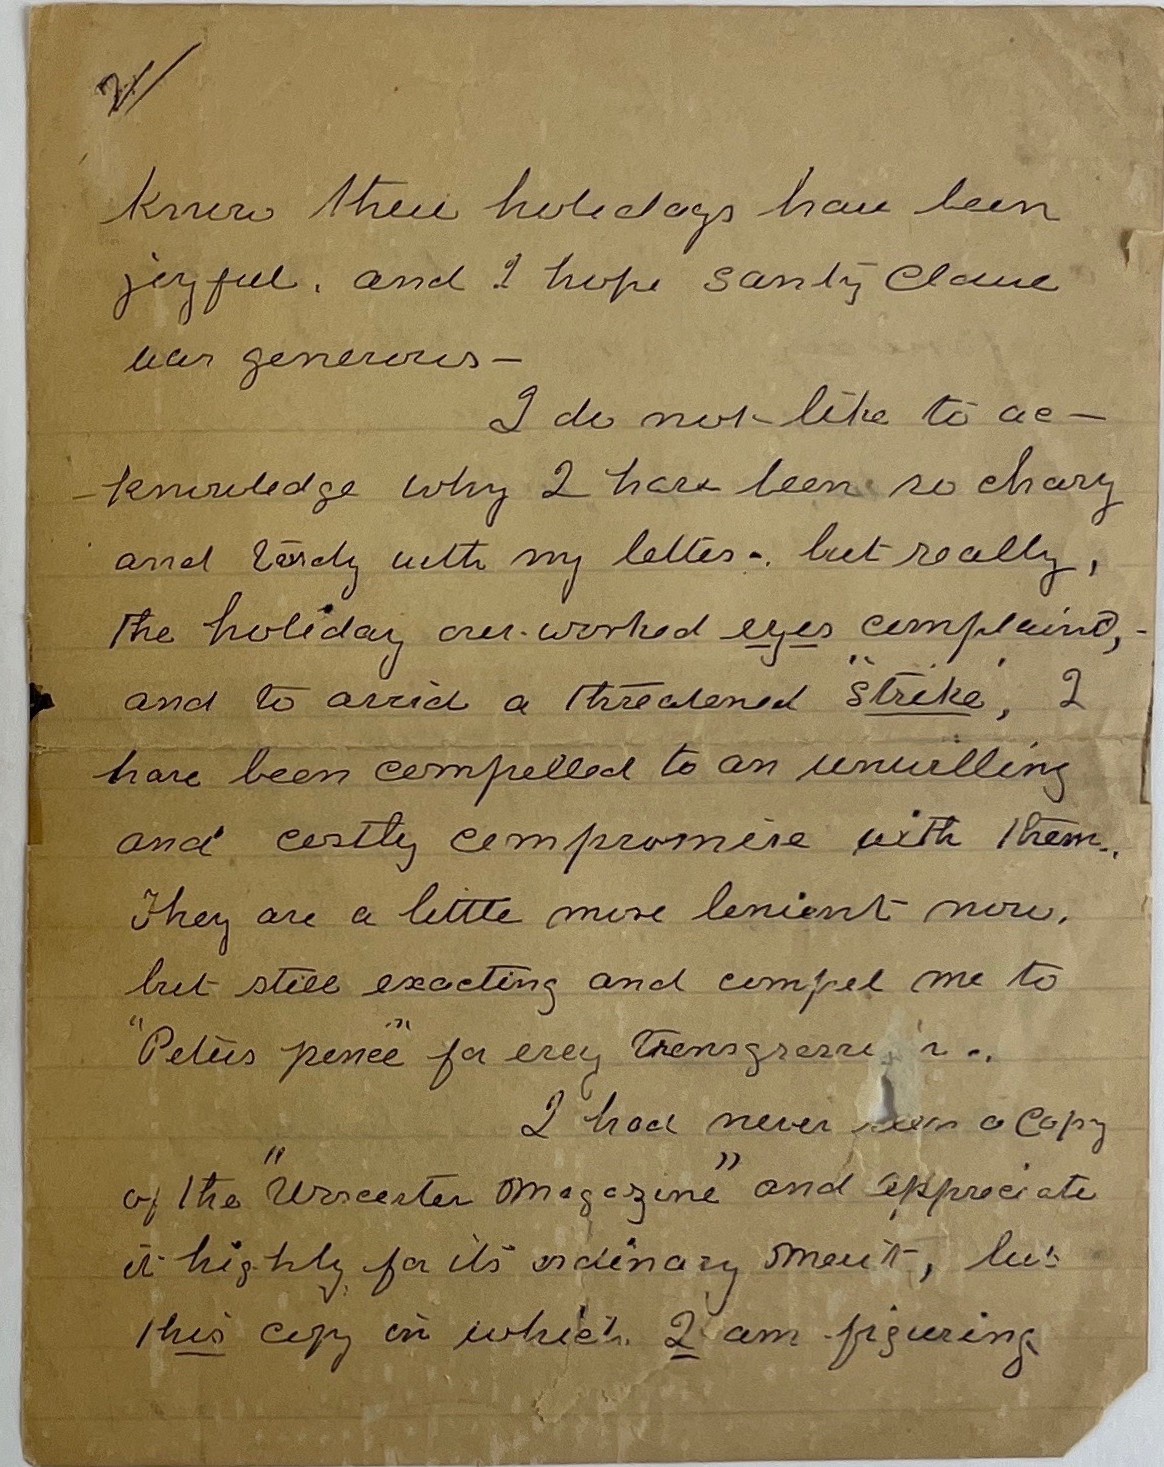 2/
know their holidays have been
joyful. and I hope Santy Claue
was generous –
I do not like to ac –
– knowledge why I have been so chary
and tardy with my letter –. but really,
the holiday over-worked eyes complaind, -
and to avoid a threatened "strike", I
have been compelled to an unwilling
and costly compromise with them..
They are a little more lenient now.
but still exacting and compel me to
"Peters pence" for evey transgression –.
I had never seen a copy
of the "Worcester Magazine" and appreciate
it highly for its ordinary merit, but
this copy in which I am figuring